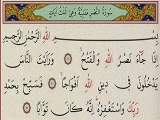 سورة النصر مدنية وهي ثلاث آيات
بسم الله الرحمن الرحيم
إذا جاء نصر الله والفتح ورأيت الناس
يدخلون في دين الله أفواجا فسبح بحمد
ربك واستغفره إنه كان توابا